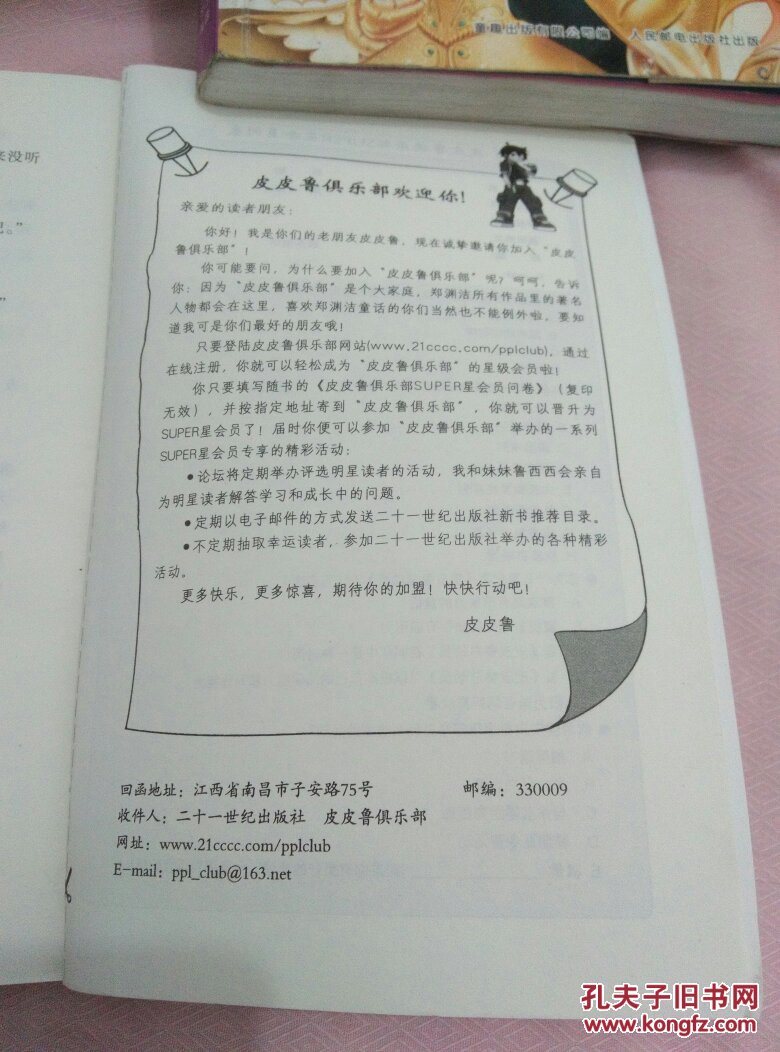 童趣出版有限公司编 人民邮电出版社出版
来没听
。”
”
皮皮鲁俱乐部欢迎你！
亲爱的读者朋友：
你好！我是你们的老朋友皮皮鲁，现在诚挚邀请你加入“皮皮
鲁俱乐部”！
你可能要问，为什么要加入“皮皮鲁俱乐部”呢？呵呵，告诉
你：因为“皮皮鲁俱乐部”是个大家庭，郑渊洁所有作品里的著名
人物都会在这里，喜欢郑渊洁童话的你们当然也不能例外啦，要知
道我可是你们最好的朋友哦！
只要登陆皮皮鲁俱乐部网站(www.21cccc.com/pplclub)，通过
在线注册，你就可以轻松成为“皮皮鲁俱乐部”的星级会员啦！
你只要填写随书的《皮皮鲁俱乐部SUPER星会员问卷》（复印
无效），并按指定地址寄到“皮皮鲁俱乐部”，你就可以晋升为
SUPER星会员了！届时你便可以参加“皮皮鲁俱乐部”举办的一系列
SUPER星会员专享的精彩活动：
●论坛将定期举办评选明星读者的活动，我和妹妹鲁西西会亲自
为明星读者解答学习和成长中的问题。
●定期以电子邮件的方式发送二十一世纪出版社新书推荐目录。
●不定期抽取幸运读者，参加二十一世纪出版社举办的各种精彩
活动。
更多快乐，更多惊喜，期待你的加盟！快快行动吧！
皮皮鲁
回函地址：江西省南昌市子安路75号 邮编：330009
收件人：二十一世纪出版社 皮皮鲁俱乐部
网址：www.21cccc.com/pplclub
E-mail：ppl_club@163.net
孔夫子旧书网
www.kongfz.com